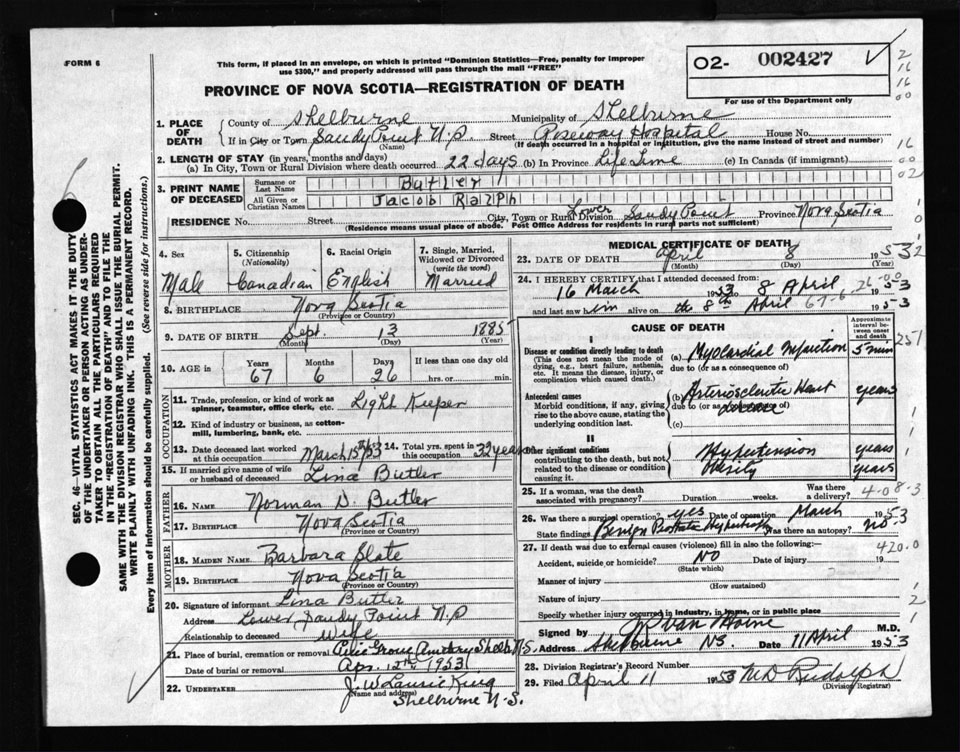 FORM 6
This form, if placed in an envelope, on which is printed "Dominion Statistics—Free, penalty for improper
use $300," and properly addressed will pass through the mail "FREE"
PROVINCE OF NOVA SCOTIA—REGISTRATION OF DEATH
O2- 002427
For use of the Department only
2
16
16
00
1. PLACE OF DEATH
County of Shelburne Municipality of Shelburne
If in City or Town Sandy Point N.S Street Roseway Hospital House No.
(Name) (If death occurred in a hospital or institution, give the name instead of street and number)
2. LENGTH OF STAY (in years, months and days)
(a) In City, Town or Rural Division where death occurred 22 days (b) In Province Life time (c) In Canada (if immigrant)
16
00
02
3. PRINT NAME OF DECEASED
Surname or Last Name Butler
All Given or Christian Names Jacob Ralph
RESIDENCE No. Street City, Town or Rural Division Lower Sandy Point Province Nova Scotia
(Residence means usual place of abode. Post Office Address for residents in rural parts not sufficient)
SEC. 46—VITAL STATISTICS ACT MAKES IT THE DUTY
OF THE UNDERTAKER OR PERSON ACTING AS UNDER-
TAKER TO OBTAIN ALL THE PARTICULARS REQUIRED
IN THE "REGISTRATION OF DEATH" AND TO FILE THE
SAME WITH THE DIVISION REGISTRAR WHO SHALL ISSUE THE BURIAL PERMIT.
WRITE PLAINLY WITH UNFADING INK. THIS IS A PERMANENT RECORD.
Every item of information should be carefully supplied. (See reverse side for instructions.)
4. Sex Male
5. Citizenship (Nationality) Canadian
6. Racial Origin English
7. Single, Married, Widowed or Divorced (write the word) Married
8. BIRTHPLACE Nova Scotia
(Province or Country)
9. DATE OF BIRTH Sept. 13 1885
(Month) (Day) (Year)
10. AGE in Years 67 Months 6 Days 26 If less than one day old
hrs. or min.
OCCUPATION
11. Trade, profession, or kind of work as
spinner, teamster, office clerk, etc. Light Keeper
12. Kind of industry or business, as cotton-
mill, lumbering, bank, etc.
13. Date deceased last worked at this occupation March 15th/53
14. Total yrs. spent in this occupation 32 years
15. If married give name of wife
or husband of deceased Lina Butler
FATHER
16. NAME Norman D. Butler
17. BIRTHPLACE Nova Scotia
(Province or Country)
MOTHER
18. MAIDEN NAME Barbara Slate
19. BIRTHPLACE Nova Scotia
(Province or Country)
20. Signature of informant Lina Butler
Address Lower Sandy Point N.S
Relationship to deceased Wife
21. Place of burial, cremation or removal Grove Shelb. N.S.
Date of burial or removal Apr. 12th 1953
22. UNDERTAKER J. W. Laurie King
(Name and address)
Shelburne N.S.
MEDICAL CERTIFICATE OF DEATH
23. DATE OF DEATH April 8 1953
(Month) (Day) (Year)
24. I HEREBY CERTIFY, that I attended deceased from:
16 March 1953 to 8 April 1953
and last saw him alive on the 8th April 1953
67-6-26-00
CAUSE OF DEATH
Approximate interval between onset and death
I
Disease or condition directly leading to death
(This does not mean the mode of
dying, e.g., heart failure, asthenia,
etc. It means the disease, injury, or
complication which caused death.
(a) Myocardial Infarction 5 min
due to (or as a consequence of)
Antecedent causes
Morbid conditions, if any, giving
rise to the above cause, stating the
underlying condition last.
(b) Arteriosclerotic Heart Disease years
due to (or as a consequence of)
(c)
II
Other significant conditions
contributing to the death, but not
related to the disease or condition
causing it.
Hypertension years
Obesity years
251
25. If a woman, was the death
associated with pregnancy? Duration weeks. Was there a delivery?
4-08-3
26. Was there a surgical operation? yes Date of operation March 1953
State findings Benign Prostatic Hypertrophy Was there an autopsy? no
27. If death was due to external causes (violence) fill in also the following:—
420.0
Accident, suicide or homicide? NO Date of injury 19
(State which)
Manner of injury
(How sustained)
Nature of injury
Specify whether injury occurred in industry, in home, or in public place
Signed by M.D.
Address Shelburne NS. Date 11 April 1953
28. Division Registrar's Record Number
29. Filed April 11 1953 M D Rudolph
(Division Registrar)